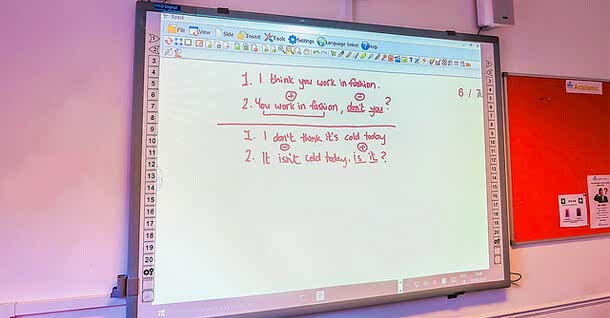 Spark
File View Slide Insert Tools Settings Language Select Help
1. I think you work in fashion.
+ −
2. You work in fashion, don't you?
6 / 7
1. I don't think it's cold today
− +
2. It isn't cold today, is it?
Academic
1
2
3
4
5
6
7
8
9
10
11
12
13
14
15
16
17
18
19
20